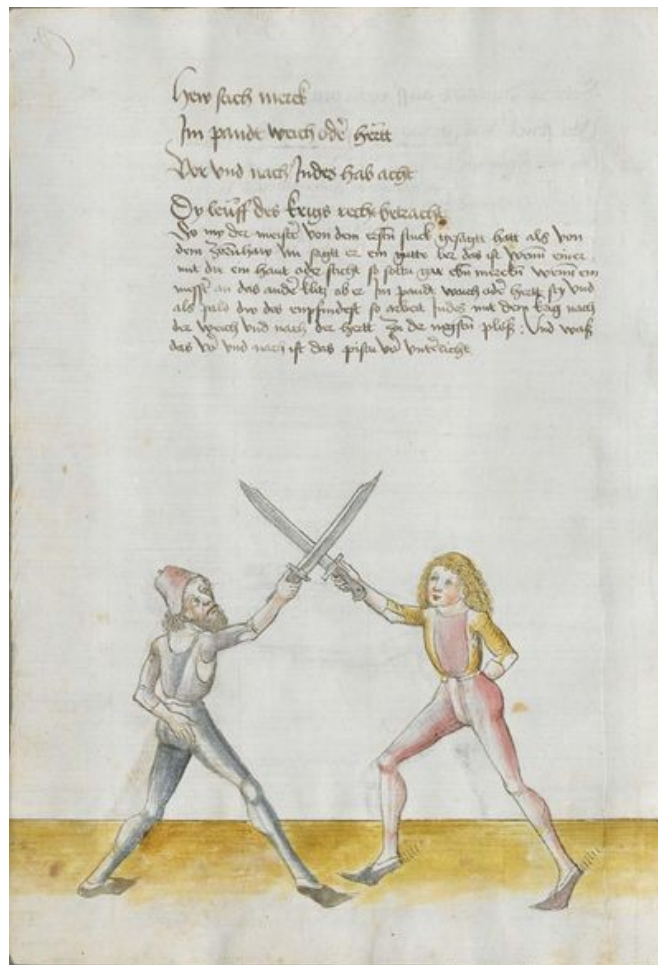 Hew stich merck
Im pandt weich oder hertt
Vor und nach Indes hab acht
Dy leuff des krigs recht betracht
Do my der meister von dem ersten stuck gesagtt hatt als von
dem Zornhaw Nu sagtt er ein gutte ler das ist wenn einer
mit dir ein haut oder sticht so soltu gar eben mercken wenn ein
messer an das ander klitzt ob er Im pandt waich oder hertt sey und
als pald duw das empfindest so arbeit Indes mit dem krig nach
der weich und nach der hertt zu der negsten plöß : Und waß
das vor und nach ist das pistu vor unterricht